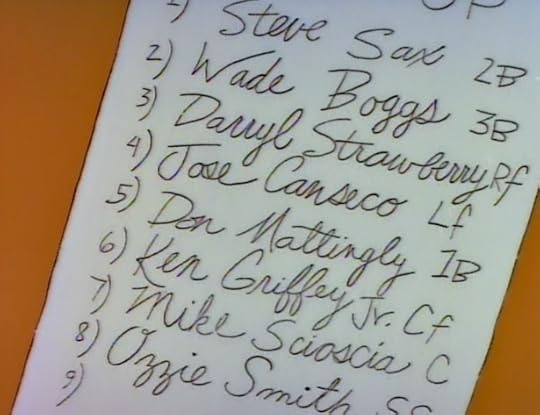 1) Steve Sax 2B
2) Wade Boggs 3B
3) Darryl Strawberry Rf
4) Jose Canseco Lf
5) Don Mattingly 1B
6) Ken Griffey Jr. Cf
7) Mike Scioscia C
8) Ozzie Smith SS
9)